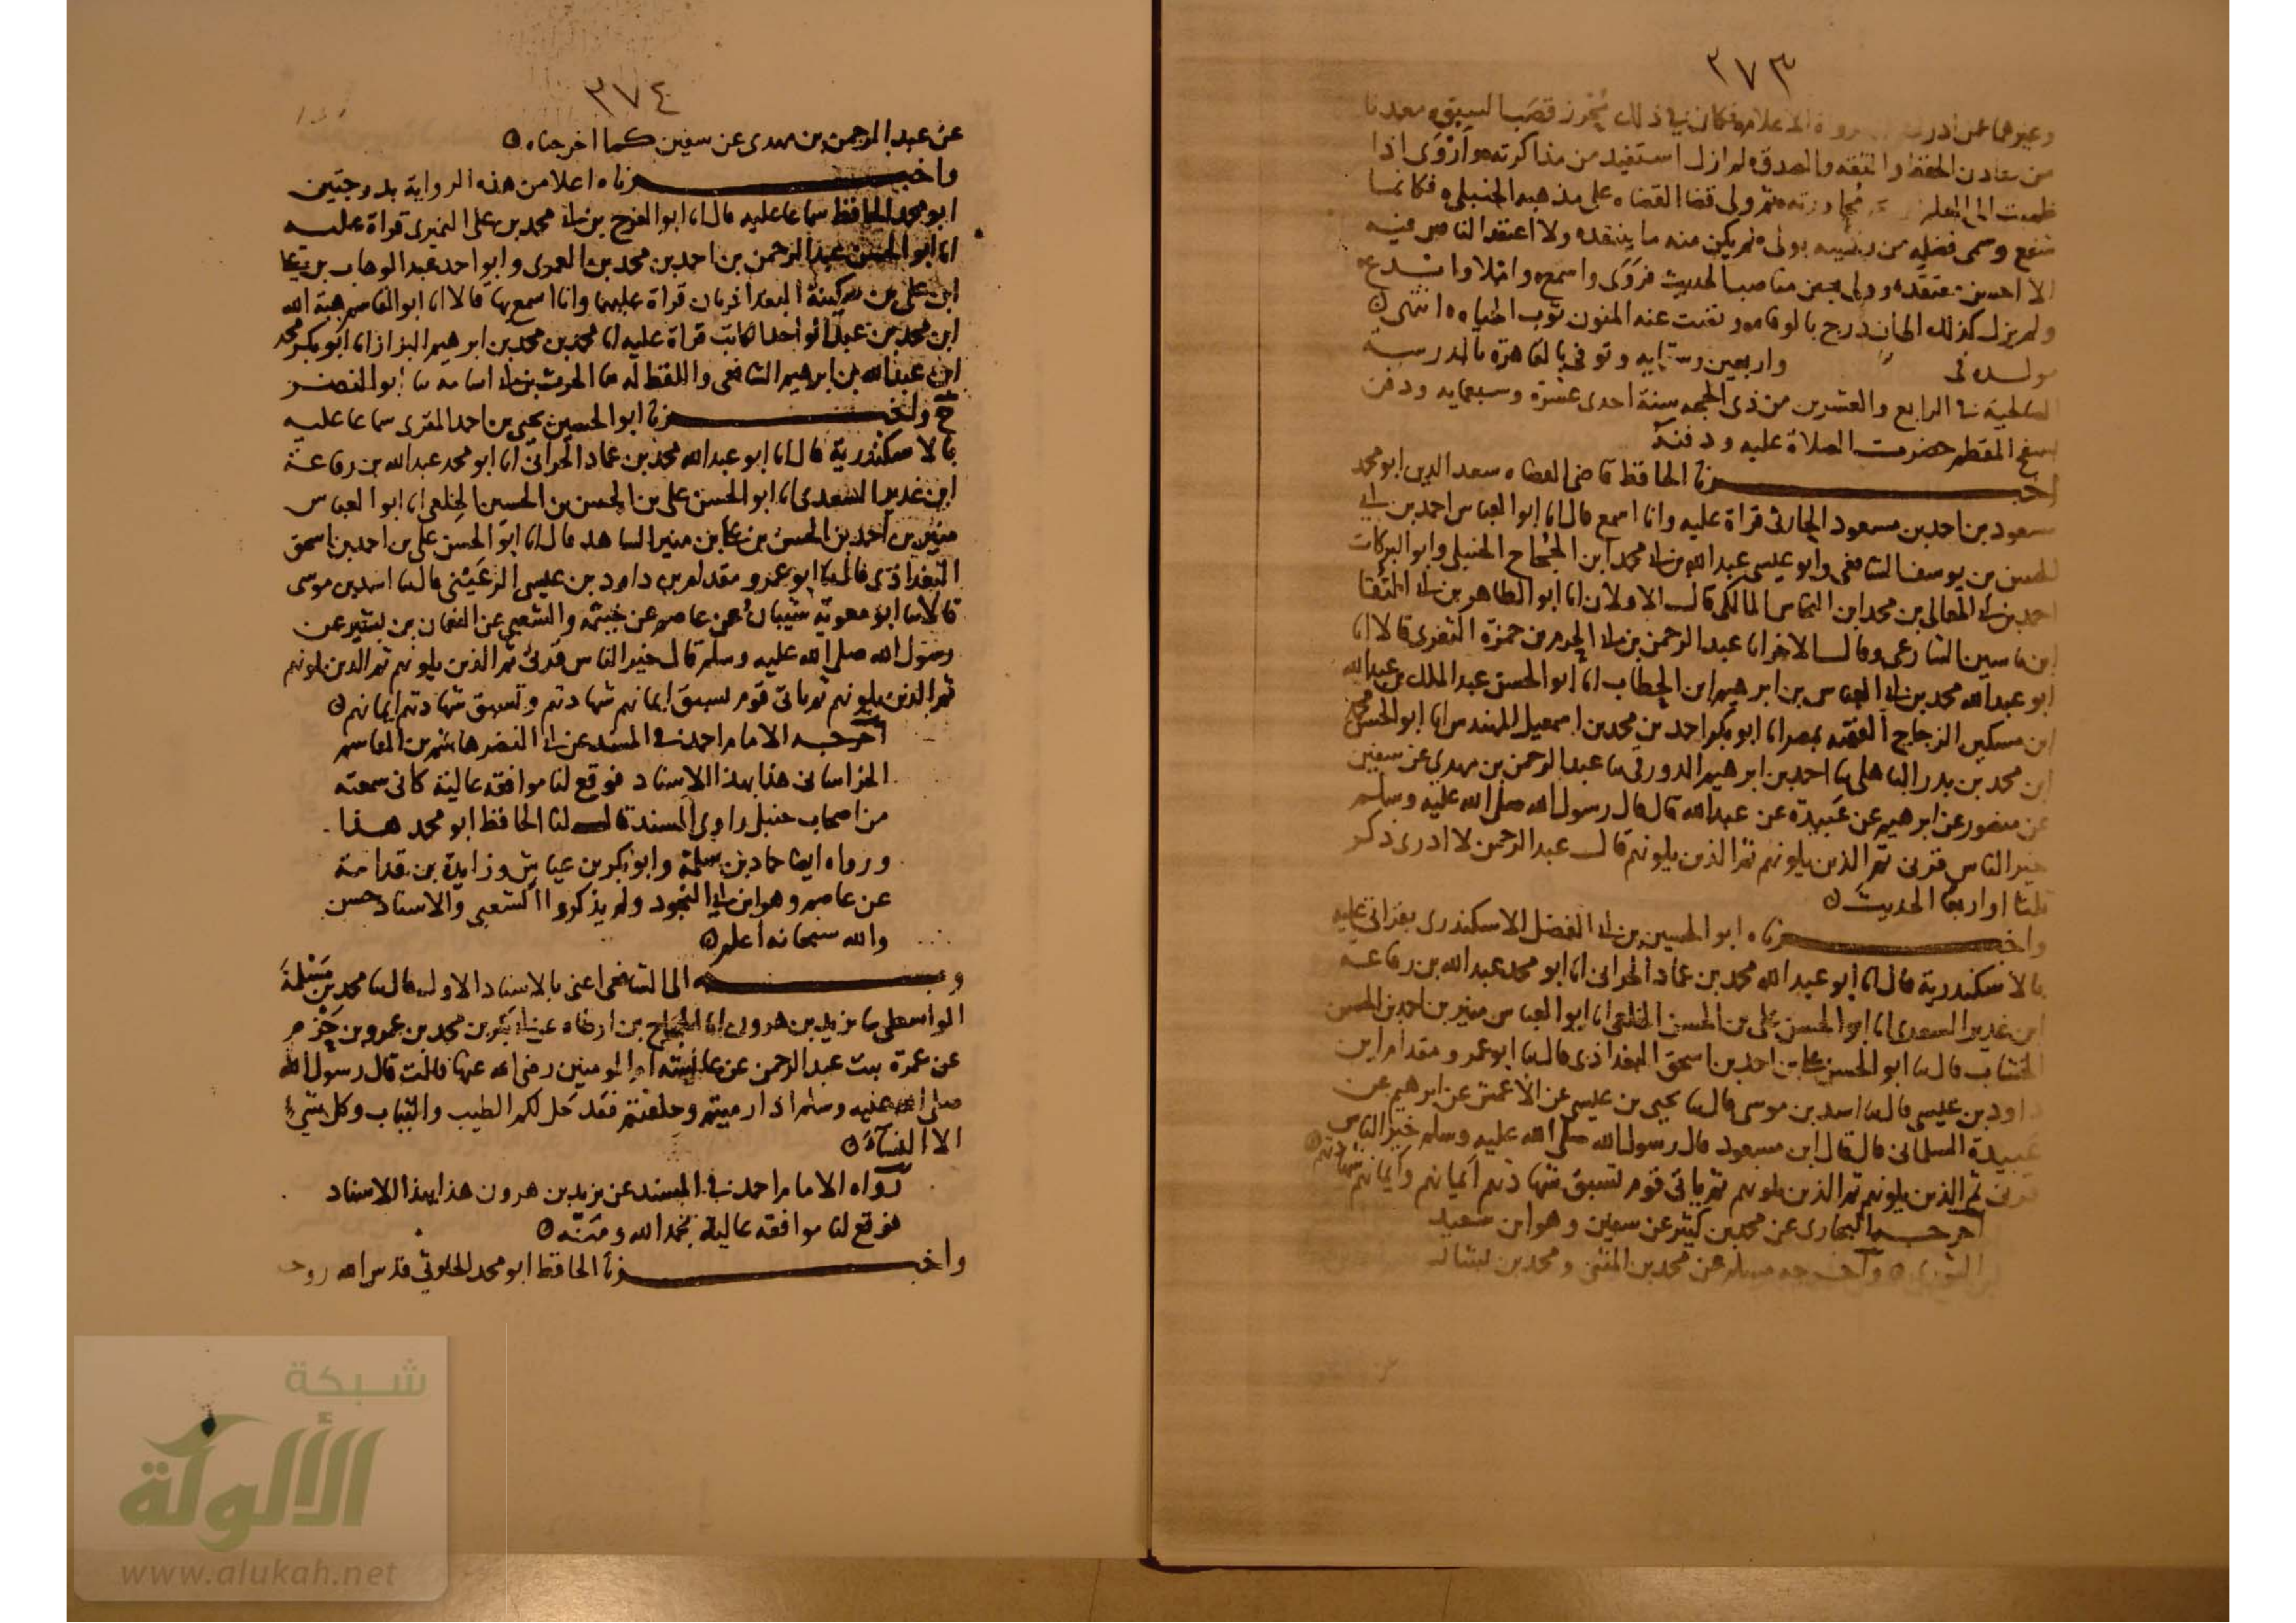 ٣٧٣
وغيرهما ممن ادرك الاعلام فكان في ذلك يحرز قصب السبق معدنا
من معادن الحفظ والثقة والصدق لم ازل استفيد من مذاكرته وأروى اذا
ظمئت الى العلم مجاورته ثم ولى قضا القضاه على مذهبه الحنبلى فكانما
شفع وسمى فضله من بولى لم يكن منه ما ينقده ولا اعتقد الناس فيه
الا احسن معتقده وولى بعض مناصب الحديث فروى واسمع وابتدع
ولم يزل كذلك الى ان درج بالوفاه ونضت عنه المنون ثوب الحياه انتهى ه
مولده فى واربعين وستمايه وتوفى بالقاهرة بالمدرسة
الصالحية فى الرابع والعشرين من ذى الحجه سنة احدى عشرة وسبعمايه ودفن
بسفح المقطم حضرت الصلاة عليه ودفنه
اخبرنا الحافظ قاضى القضاه سعد الدين ابو محمد
مسعود بن احمد بن مسعود الحارثى قراة عليه وانا اسمع قال انا ابو العباس احمد بن ابى
الحسن بن يوسف الشافعى وابو عيسى عبد الله بن ابى محمد ابن الحجاج الحنبلى وابو البركات
احمد بن ابى المعالى بن محمد ابن النحاس المالكى قال الاولان انا ابو الطاهر بن ابى التقا
ابن ياسين الشارعى وقال الاخر انا عبد الرحمن بن ابى الحرم بن حمزة الثغرى قالا انا
ابو عبد الله محمد بن ابى العباس بن ابرهيم ابن الحطاب انا ابو الحسن عبد الملك بن عبد الله
ابن مسكين الزجاج الفقيه بمصر انا ابو بكر احمد بن محمد بن اسمعيل المهندس انا ابو الحسن محمد
ابن محمد بن بدر الباهلى ثنا احمد بن ابرهيم الدورقى ثنا عبد الرحمن بن مهدى عن سفين
عن منصور عن ابرهيم عن عبيدة عن عبد الله قال قال رسول الله صلى الله عليه وسلم
خير الناس قرنى ثم الذين يلونهم ثم الذين يلونهم قال عبد الرحمن لا ادرى ذكر
ثلثا او اربعا الحديث ه
واخبرناه ابو الحسين بن ابى الفضل الاسكندرى بقراتى عليه
بالاسكندرية قال انا ابو عبد الله محمد بن عماد الحرانى انا ابو محمد عبد الله بن رفاعة
ابن غدير السعدى انا ابو الحسن على بن الحسن الخلعى انا ابو العباس منير بن احمد بن الحسن
الخشاب قال ثنا ابو الحسن على بن احمد بن اسحق البغداذى قال ثنا ابو عمرو مقدام ابن
داود بن عيسى قال ثنا اسد بن موسى قال ثنا يحيى بن عيسى عن الاعمش عن ابرهيم عن
عبيدة السلمانى قال قال ابن مسعود قال رسول الله صلى الله عليه وسلم خير الناس
قرنى ثم الذين يلونهم ثم الذين يلونهم ثم ياتى قوم تسبق شهادتهم ايمانهم وايمانهم شهادتهم ه
اخرجه البخارى عن محمد بن كثير عن سفين وهو ابن سعيد
الثورى ه واخرجه مسلم عن محمد بن المثنى ومحمد بن بشار
٣٧٤
عن عبد الرحمن بن مهدى عن سفين كما اخرجناه ه
واخبرناه اعلا من هذه الرواية بدرجتين
ابو محمد الحافظ سماعا عليه قال انا ابو الفرج بن ابى محمد بن على النميرى قراة عليه
انا ابو الحسن عبد الرحمن بن احمد بن محمد بن العمرى وابو احمد عبد الوهاب بن على
ابن على بن سكينة البغداذيان قراة عليهما وانا اسمع بها قالا انا ابو القاسم هبة الله
ابن محمد بن عبد الواحد الكاتب قراة عليه انا محمد بن محمد بن ابرهيم البزاز انا ابو بكر محمد
ابن عبد الله بن ابرهيم الشافعى واللفظ له ثنا الحرث بن ابى اسامه ثنا ابو النضر
ح واخبرنا ابو الحسين يحيى بن احمد المقرى سماعا عليه
بالاسكندرية قال انا ابو عبد الله محمد بن عماد الحرانى انا ابو محمد عبد الله بن رفاعة
ابن غدير السعدى انا ابو الحسن على بن الحسن بن الحسين الخلعى انا ابو العباس
منير بن احمد بن الحسن بن على بن منير الشاهد قال انا ابو الحسن على بن احمد بن اسحق
البغداذى قال ثنا ابو عمرو مقدام بن داود بن عيسى الرعينى قال ثنا اسد بن موسى
قالا ثنا ابو معوية شيبان عن عاصم عن خيثمة والشعبى عن النعمان بن بشير عن
رسول الله صلى الله عليه وسلم قال خير الناس قرنى ثم الذين يلونهم ثم الذين يلونهم
ثم الذين يلونهم ثم ياتى قوم تسبق ايمانهم شهادتهم وتسبق شهادتهم ايمانهم ه
اخرجه الامام احمد فى المسند عن ابى النضر هاشم بن القاسم
الخراسانى هذا بهذا الاسناد فوقع لنا موافقه عالية كانى سمعته
من اصحاب حنبل راوى المسند قال لنا الحافظ ابو محمد هذا
ورواه ايضا حماد بن سلمة وابو بكر بن عياش وزايدة بن قدامة
عن عاصم وهو ابن ابى النجود ولم يذكروا الشعبى والاسناد حسن
والله سبحانه اعلم ه
وبه الى الشافعى اعنى بالاسناد الاول قال ثنا محمد بن مسلمة
الواسطى ثنا يزيد بن هرون انا الحجاج بن ارطاه عن ابى بكر بن محمد بن عمرو بن حزم
عن عمرة بنت عبد الرحمن عن عايشة ام المومنين رضى الله عنها قالت قال رسول الله
صلى الله عليه وسلم اذا رميتم وحلقتم فقد حل لكم الطيب والثياب وكل شىء
الا النسآء ه
رواه الامام احمد فى المسند عن يزيد بن هرون هذا بهذا الاسناد
فوقع لنا موافقه عالية بحمد الله ومنه ه
واخبرنا الحافظ ابو محمد الحارثى قدس الله روحه
شبكة
الألوكة
www.alukah.net